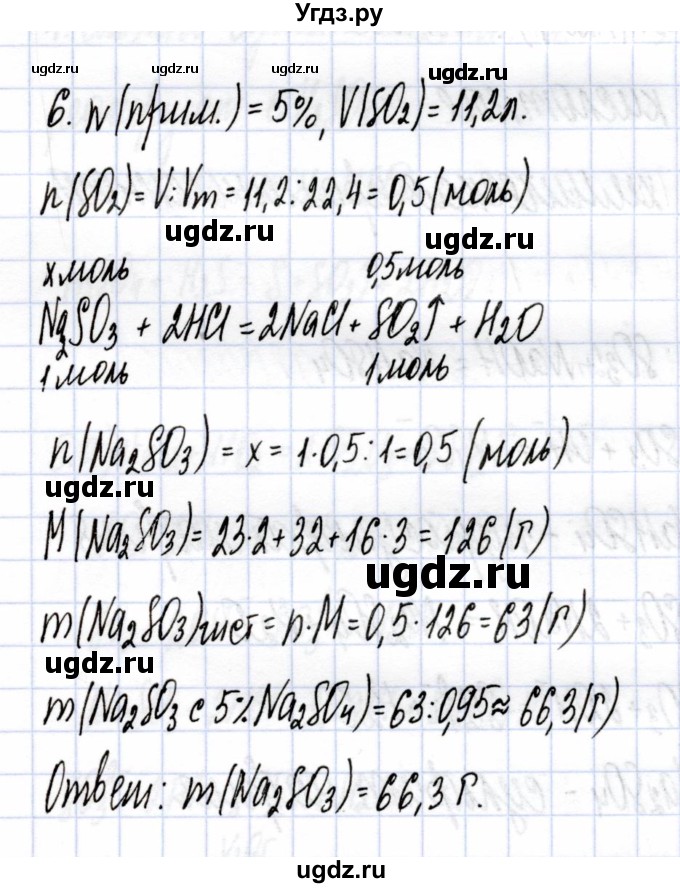 Угдз.ру
ugdz.ru ugdz.ru ugdz.ru
6. W(прим.) = 5%, V(SO₂) = 11,2л.
n(SO₂) = V:Vm = 11,2:22,4 = 0,5(моль)
ugdz.ru ugdz.ru
x моль 0,5моль
Na₂SO₃ + 2HCl = 2NaCl + SO₂↑ + H₂O
1 моль 1 моль
n(Na₂SO₃) = x = 1·0,5:1=0,5 (моль)
ugdz.ru
M(Na₂SO₃) = 23·2+32+16·3 = 126(г)
ugdz.ru
m(Na₂SO₃)чист = n·M = 0,5·126 = 63(г)
ugdz.ru
m(Na₂SO₃ с 5% Na₂SO₄) = 63:0,95 ≈ 66,3(г)
Ответ: m(Na₂SO₃) = 66,3 г.
ugdz.ru